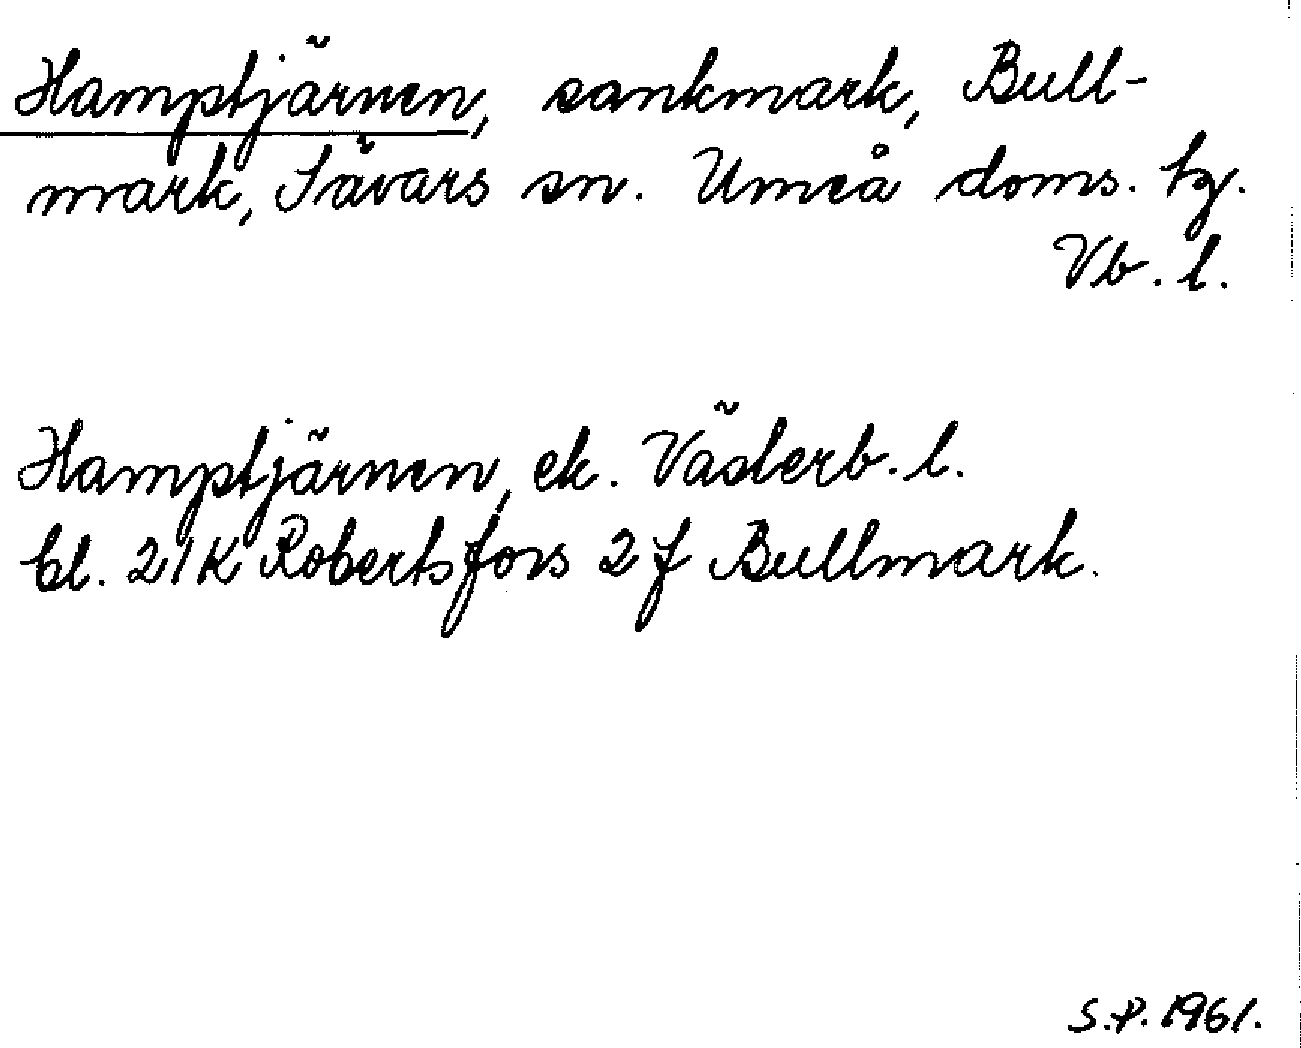 Hamptjärnen, sankmark, Bull-
mark, Sävars sn. Umeå doms. tg.
Vb. l.
Hamptjärnen, ek. Västerb. l.
bl. 21K Robertsfors 2 f Bullmark.
S.P. 1961.